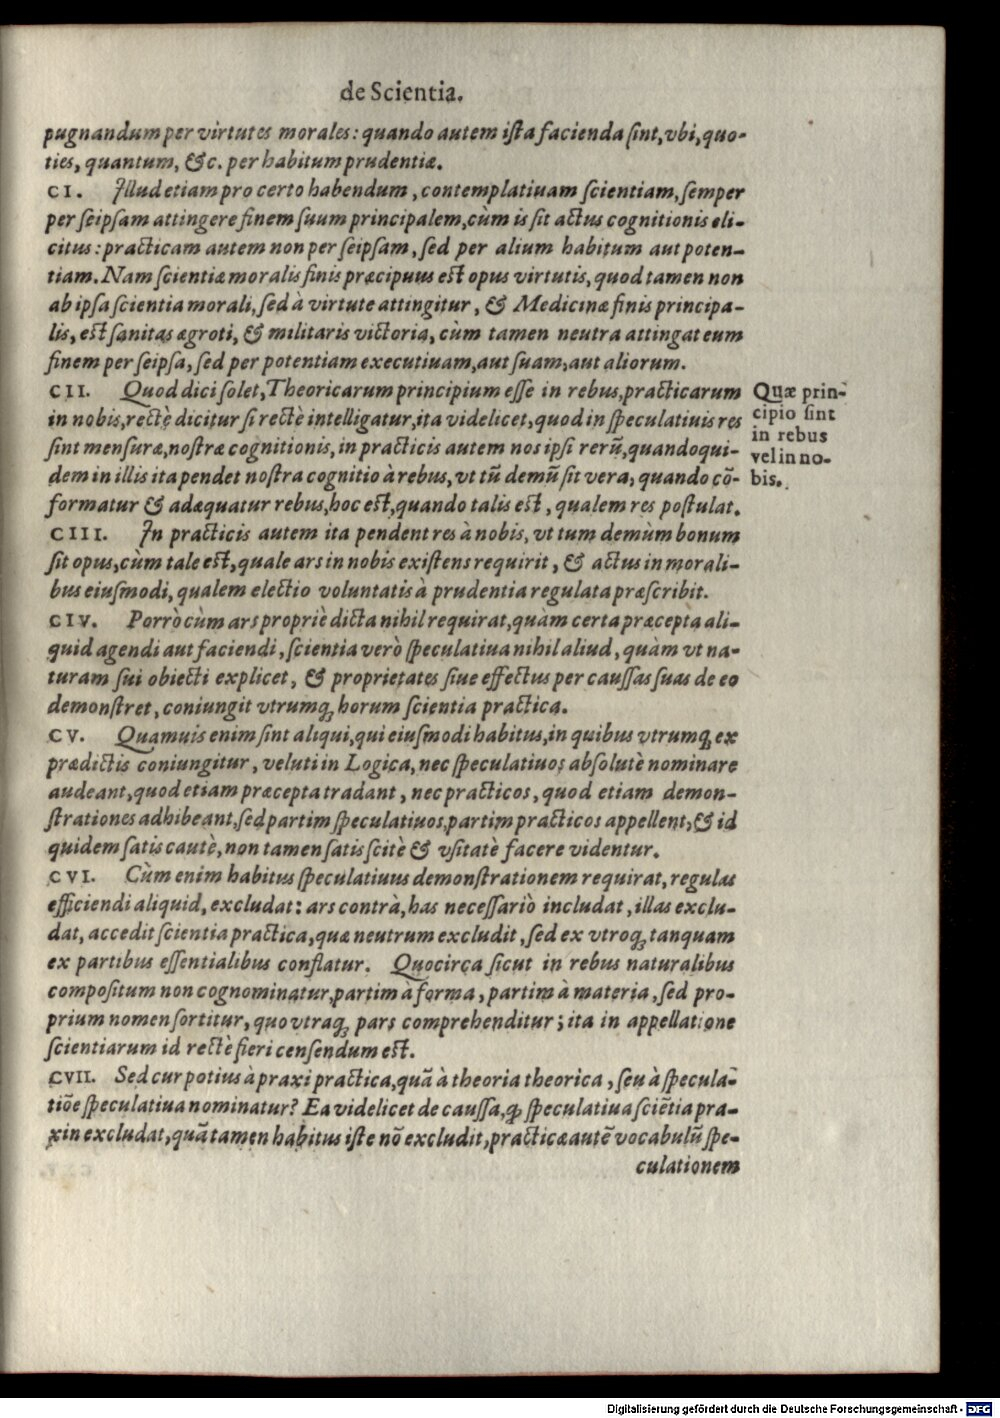 de Scientia.
pugnandum per virtutes morales: quando autem iſta facienda ſint, vbi, quo-
ties, quantum, &c. per habitum prudentiæ.
CI. Illud etiam pro certo habendum, contemplatiuam ſcientiam, ſemper
per ſeipſam attingere finem ſuum principalem, cùm is ſit actus cognitionis eli-
citus: practicam autem non per ſeipſam, ſed per alium habitum aut poten-
tiam. Nam ſcientiæ moralis finis præcipuus eſt opus virtutis, quod tamen non
ab ipſa ſcientia morali, ſed à virtute attingitur, & Medicinæ finis principa-
lis, eſt ſanitas ægroti, & militaris victoria, cùm tamen neutra attingat eum
finem per ſeipſa, ſed per potentiam executiuam, aut ſuam, aut aliorum.
CII. Quod dici ſolet, Theoricarum principium eſſe in rebus, practicarum
in nobis, rectè dicitur ſi rectè intelligatur, ita videlicet, quod in ſpeculatiuis res
ſint menſuræ, noſtræ cognitionis, in practicis autem nos ipſi rerũ, quandoqui-
dem in illis ita pendet noſtra cognitio à rebus, vt tũ demũ ſit vera, quando cõ-
formatur & adæquatur rebus, hoc eſt, quando talis eſt, qualem res poſtulat.
Quæ prin-
cipio ſint
in rebus
vel in no-
bis.
CIII. In practicis autem ita pendent res à nobis, vt tum demùm bonum
ſit opus, cùm tale eſt, quale ars in nobis exiſtens requirit, & actus in morali-
bus eiuſmodi, qualem electio voluntatis à prudentia regulata præſcribit.
CIV. Porrò cùm ars propriè dicta nihil requirat, quàm certa præcepta ali-
quid agendi aut faciendi, ſcientia verò ſpeculatiua nihil aliud, quàm vt na-
turam ſui obiecti explicet, & proprietates ſiue effectus per cauſſas ſuas de eo
demonſtret, coniungit vtrumq; horum ſcientia practica.
CV. Quamuis enim ſint aliqui, qui eiuſmodi habitus, in quibus vtrumq; ex
prædictis coniungitur, veluti in Logica, nec ſpeculatiuos abſolutè nominare
audeant, quod etiam præcepta tradant, nec practicos, quod etiam demon-
ſtrationes adhibeant, ſed partim ſpeculatiuos, partim practicos appellent, & id
quidem ſatis cautè, non tamen ſatis ſcitè & vſitatè facere videntur.
CVI. Cùm enim habitus ſpeculatiuus demonſtrationem requirat, regulas
efficiendi aliquid, excludat: ars contrà, has neceſſariò includat, illas exclu-
dat, accedit ſcientia practica, quæ neutrum excludit, ſed ex vtroq; tanquam
ex partibus eſſentialibus conflatur. Quocirca ſicut in rebus naturalibus
compoſitum non cognominatur, partim à forma, partim à materia, ſed pro-
prium nomen ſortitur, quo vtraq; pars comprehenditur; ita in appellatione
ſcientiarum id rectè fieri cenſendum eſt.
CVII. Sed cur potius à praxi practica, quã à theoria theorica, ſeu à ſpecula-
tiõe ſpeculatiua nominatur? Ea videlicet de cauſſa, ꝙ ſpeculatiua ſciẽtia pra-
xin excludat, quã tamen habitus iſte nõ excludit, practicæ autẽ vocabulũ ſpe-
culationem
Digitalisierung gefördert durch die Deutsche Forschungsgemeinschaft - DFG